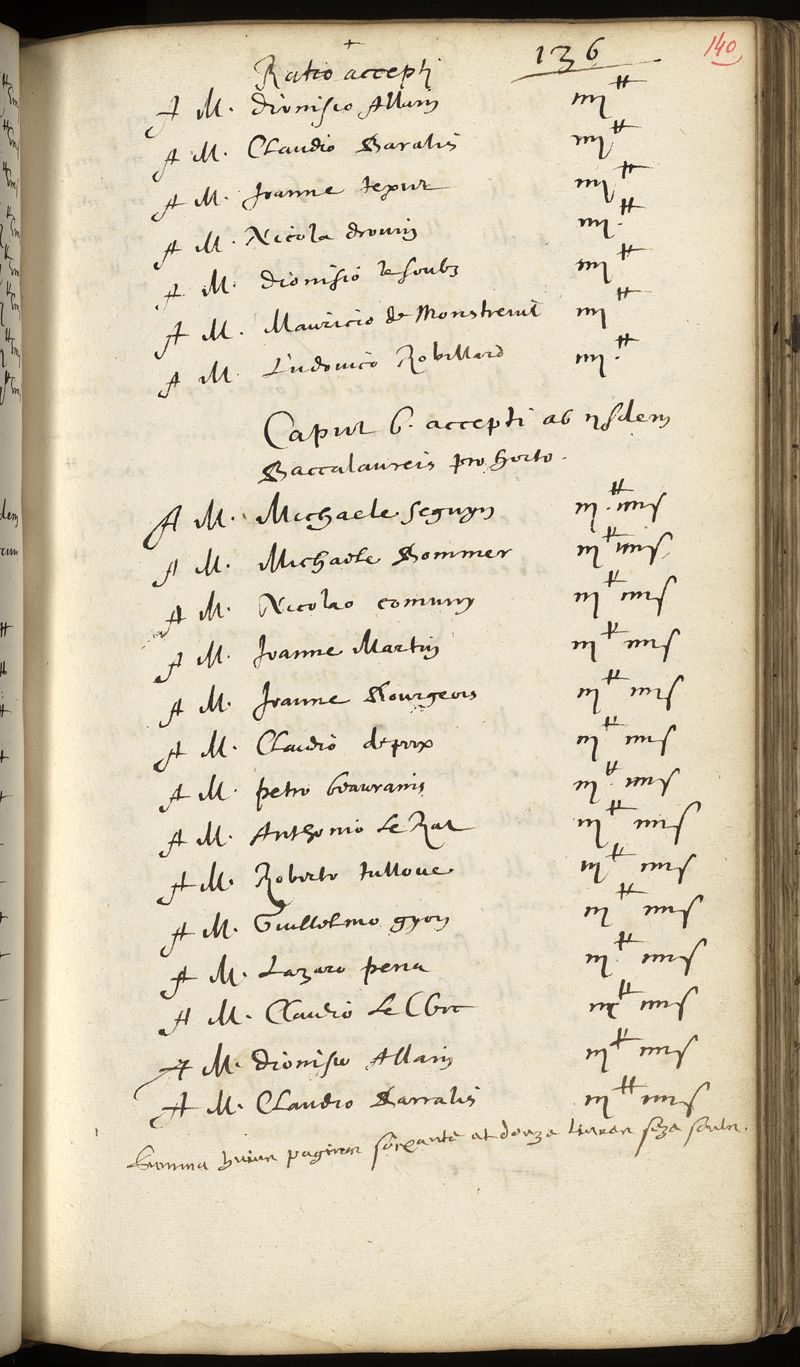 136
140
Ratio accepti
A M. Dionisio Allain iiij ℔
A M. Claudio Baralis iiij ℔
A M. Joanne texier iiij ℔
A M. Nicola drouin iiij ℔
A M. Dionisio lesoubz iiij ℔
A M. Mauricio de Monstreuil iiij ℔
A M. Ludovico Robillard iiij ℔
Caput 6. accepti ab ijsdem
Baccalaureis pro horto.
A M. Michaele seguyn iij ℔ iiij s
A M. Michaele Sommer iij ℔ iiij s
A M. Nicolao comuny iij ℔ iiij s
A M. Joanne Martin iij ℔ iiij s
A M. Joanne Bourgeois iij ℔ iiij s
A M. Claudio depoix iij ℔ iiij s
A M. petro beauvarlis iij ℔ iiij s
A M. Anthonio Le Rat iij ℔ iiij s
A M. Roberto tulloue iij ℔ iiij s
A M. Guillelmo gyon iij ℔ iiij s
A M. Lazaro pena iij ℔ iiij s
A M. Claudio Le Clerc iij ℔ iiij s
A M. Dionisio Allain iij ℔ iiij s
A M. Claudio Barralis iij ℔ iiij s
Summa huius paginae soixante et douze livres seze soulz.